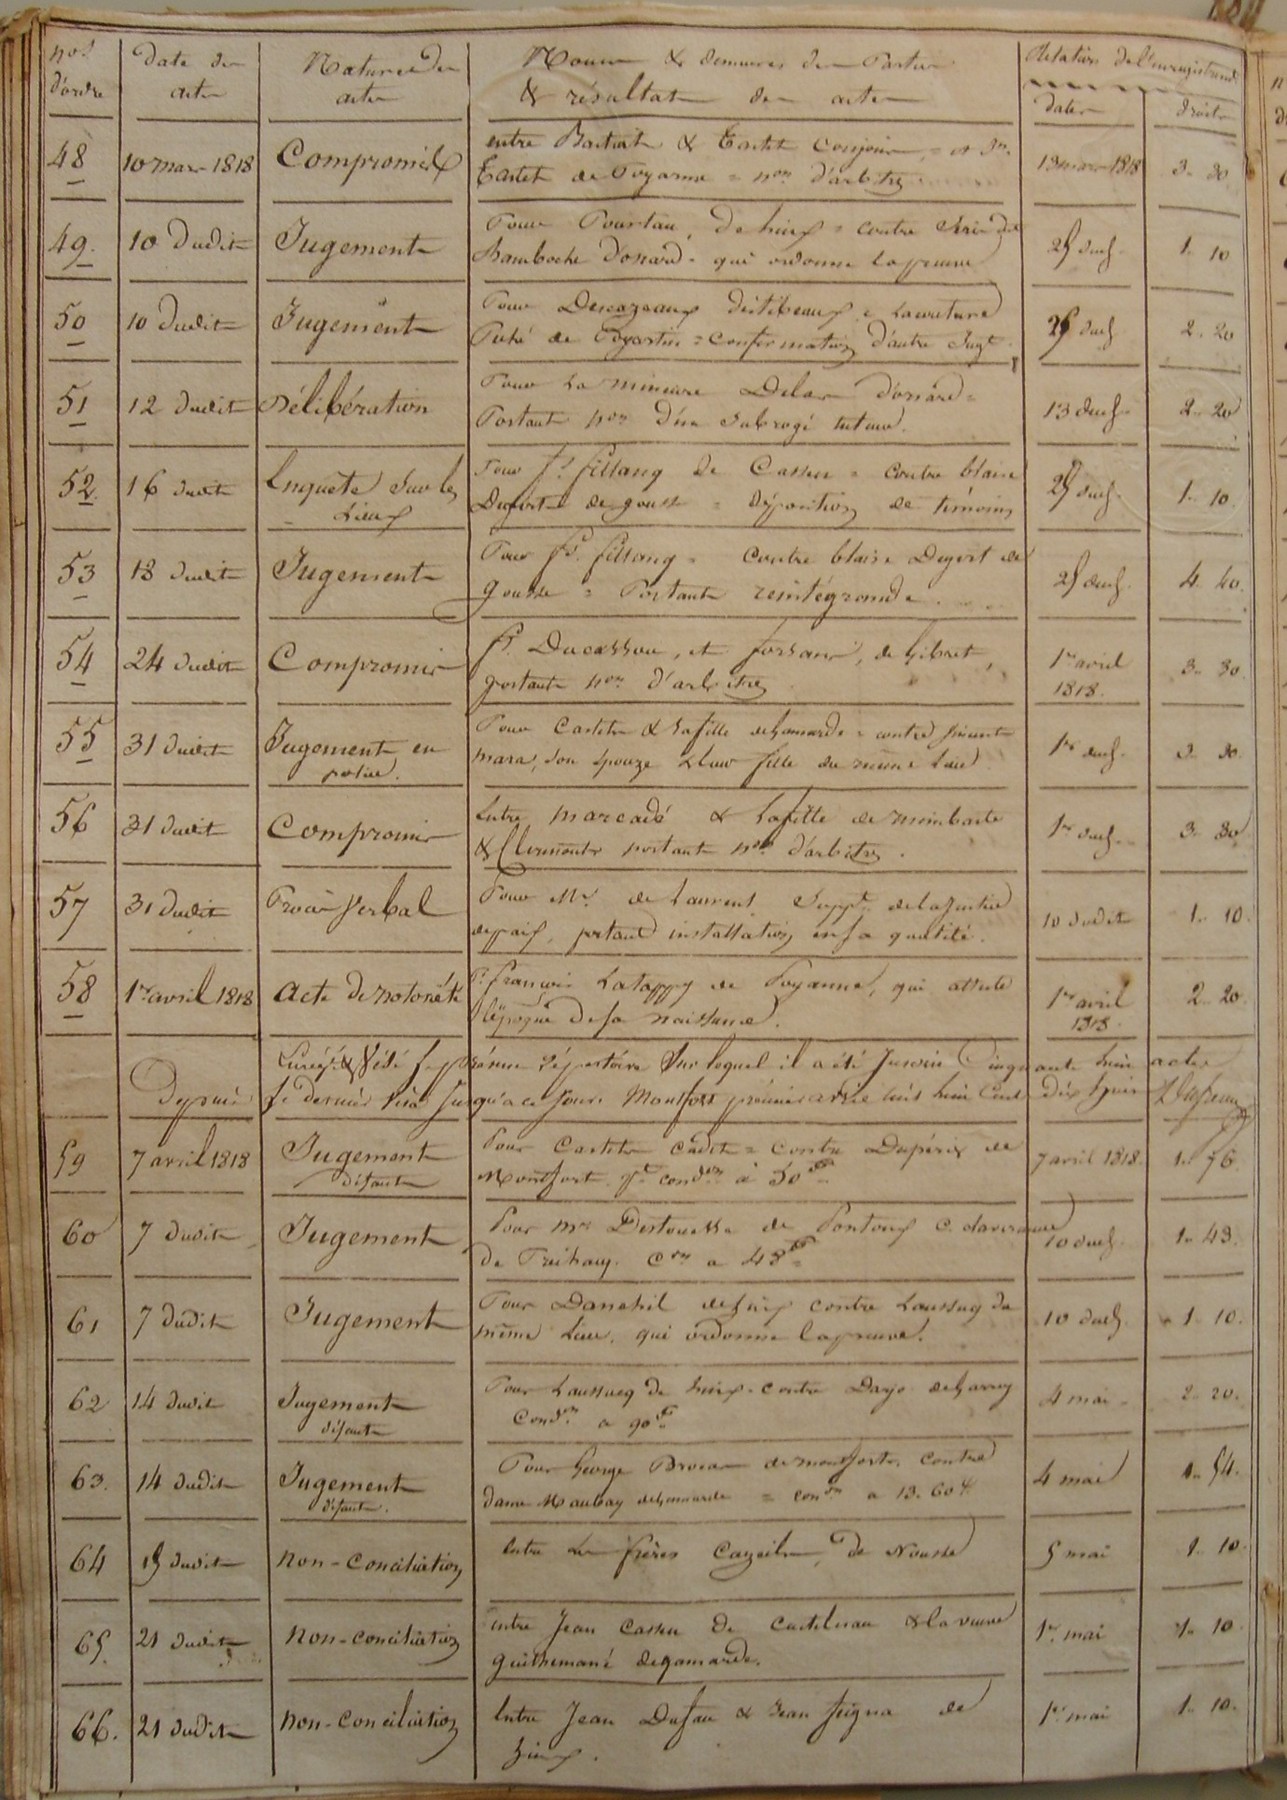 nos d'ordre
Date des actes
Nature des actes
Noms & demeures des Parties
& résultat des actes
Relation de l'enregistrement
dates
droits
48
10 mars 1818
Compromis
entre & Castet conjoints = et
Castet de Poyanne = non d'arbitres
13 mars 1818
3. 30
49.
10 Dudit
Jugement
Pour Pourtau, de hinx = contre
Bamboche d'onard = qui ordonne la preuve
25 dud.
1. 10
50
10 Dudit
Jugement
Pour Descazeaux
de Poyartin = confirmation d'autre Jugt.
25 dud.
2. 20
51
12 Dudit
Délibération
Pour La mineure Delas d'onard =
Portant non d'un subrogé tuteur.
13 dud.
2. 20
52
16 dudit
Enquête sur les
Lieux
Pour fs. fillang de Cassen = contre blaise
Dupert de gousse = déposition de témoins
25 dud.
1. 10.
53
18 Dudit
Jugement
Pour fs. fillang = contre blaise Dupert de
gousse = Portant reintégrande.
25 dud.
4. 40.
54
24 dudit
Compromis
fs. Ducassou, et forsans, de Gibret,
portant non d'arbitres
1er avril
1818.
3. 30.
55
31 Dudit
Jugement en
police.
Pour Castets & sa fille de gamarde = contre
mara, son épouze & leur fille du même lieu
1er dud.
3. 30.
56
31 Dudit
Compromis
Entre marcadé & Lafitte de nimbaste
& Clermont portant non d'arbitres.
1er dud.
3. 30
57
31 Dudit
Procès Verbal
Pour Mr. de Laurens Suppt. de la Justice
de paix, portant installation en sa qualité.
10 dudit
1. 10.
58
1er avril 1818
Acte De notoriété
Pr. françois Latappy de Poyanne, qui atteste
l'époque de sa naissance.
1er avril
1818.
2. 20.
& Visé le présent répertoire sur lequel il a été Inscrit Cinquante huit actes
Depuis le dernier visa Jusqu'à ce Jour. Montfort premier avril mil huit Cent Dix huit
59
7 avril 1818
Jugement
défaut
Pour Castets cadet = contre Dupérix de
Montfort. condon à 50
7 avril 1818.
1. 76.
60
7 dudit
Jugement
Pour Mr Destouesse de Pontonx C.
de Préchacq. con a 43
10 dud.
1. 43.
61
7 dudit
Jugement
Pour Danehil de hinx contre Laussucq du
même Lieu. qui ordonne la preuve.
10 dud.
1. 10.
62
14 dudit
Jugement
défaut
Pour Laussucq de hinx = contre Darjo
condon a 90
4 mai
2. 20.
63.
14 dudit
Jugement
défaut.
Pour George Brocas de montfort, contre
dame Maubay de gamarde = condon a 13. 60
4 mai
1. 54.
64
15 dudit
Non-conciliation
Entre Les frères Cazeils, de Nousse
5 mai
1. 10.
65.
21 dudit
Non-conciliation
Entre Jean Cassen de Castelnau & la veuve
de gamarde.
1er mai
1. 10
66.
21 dudit
Non-conciliation
Entre Jean Dufau & Jean de
hinx.
1er mai
1. 10.